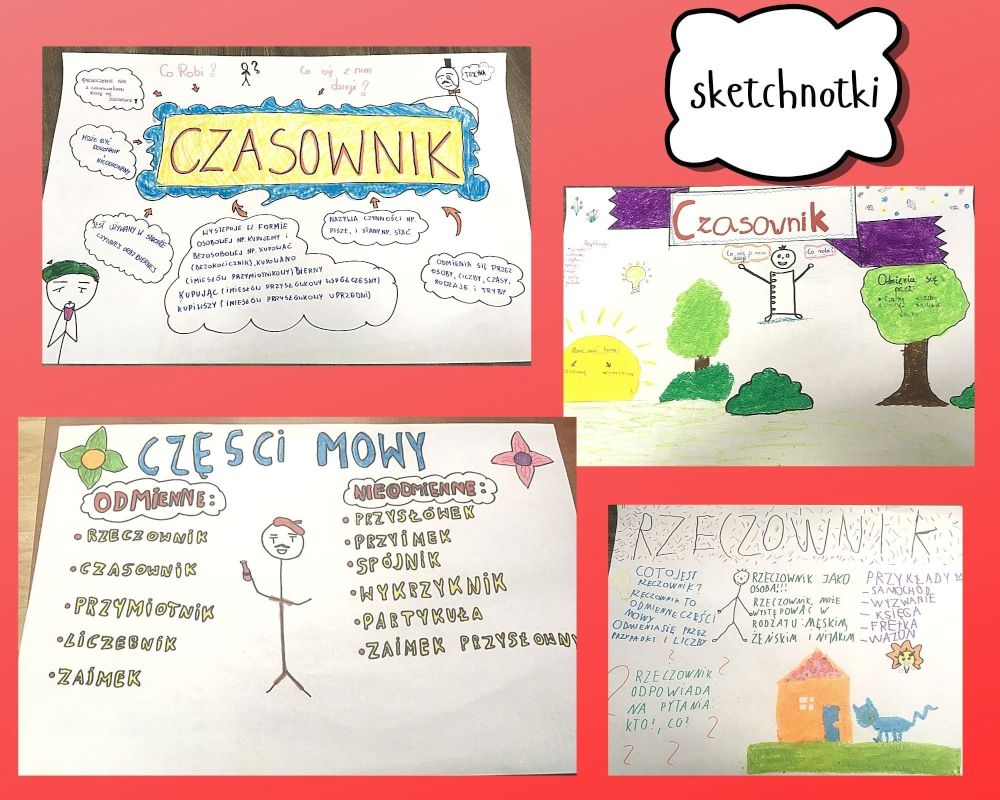 sketchnotki
Co Robi?
?
Co się z nim
dzieje?
CZASOWNIK
MOŻE BYĆ
DOKONANY
I
NIEDOKONANY
JEST UŻYWANY W STRONIE
CZYNNEJ ORAZ BIERNEJ
WYSTĘPUJE W FORMIE
OSOBOWEJ NP. KUPUJEMY I
BEZOSOBOWEJ NP. KUPOWAĆ
(BEZOKOLICZNIK), KUPOWANO
(IMIESŁÓW PRZYMIOTNIKOWY) BIERNY
KUPUJĄC (IMIESŁÓW PRZYSŁÓWKOWY WSPÓŁCZESNY)
KUPIWSZY (IMIESŁÓW PRZYSŁÓWKOWY UPRZEDNI)
NAZYWA CZYNNOŚCI NP.
PISZE, I STANY NP. STAĆ
ODMIENIA SIĘ PRZEZ
OSOBY, LICZBY, CZASY,
RODZAJE I TRYBY
Czasownik
Co się z nim
dzieje?
Co robi?
Odmienia się
przez:
CZĘŚCI MOWY
ODMIENNE:
• RZECZOWNIK
• CZASOWNIK
• PRZYMIOTNIK
• LICZEBNIK
• ZAIMEK
NIEODMIENNE:
• PRZYSŁÓWEK
• PRZYIMEK
• SPÓJNIK
• WYKRZYKNIK
• PARTYKUŁA
• ZAIMEK PRZYSŁOWNY
RZECZOWNIK
CO TO JEST
RZECZOWNIK?
RZECZOWNIK TO
ODMIENNE CZĘŚCI
MOWY
ODMIENIA SIĘ PRZEZ
PRZYPADKI I LICZBY
RZECZOWNIK JAKO
OSOBA!!!
RZECZOWNIK MOŻE
WYSTĘPOWAĆ W
RODZAJU: MĘSKIM,
ŻEŃSKIM I NIJAKIM
PRZYKŁADY
- SAMOCHÓD
- WYZWANIE
- KSIĘGA
- FRETKA
- WAZON
RZECZOWNIK
ODPOWIADA
NA PYTANIA:
KTO?, CO?